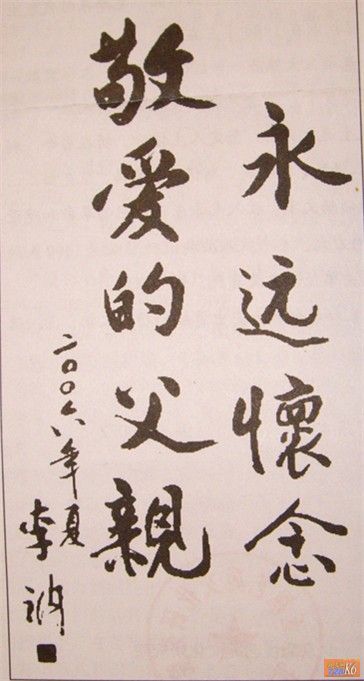 永远懷念
敬爱的父親
二〇〇六年夏
李
K6